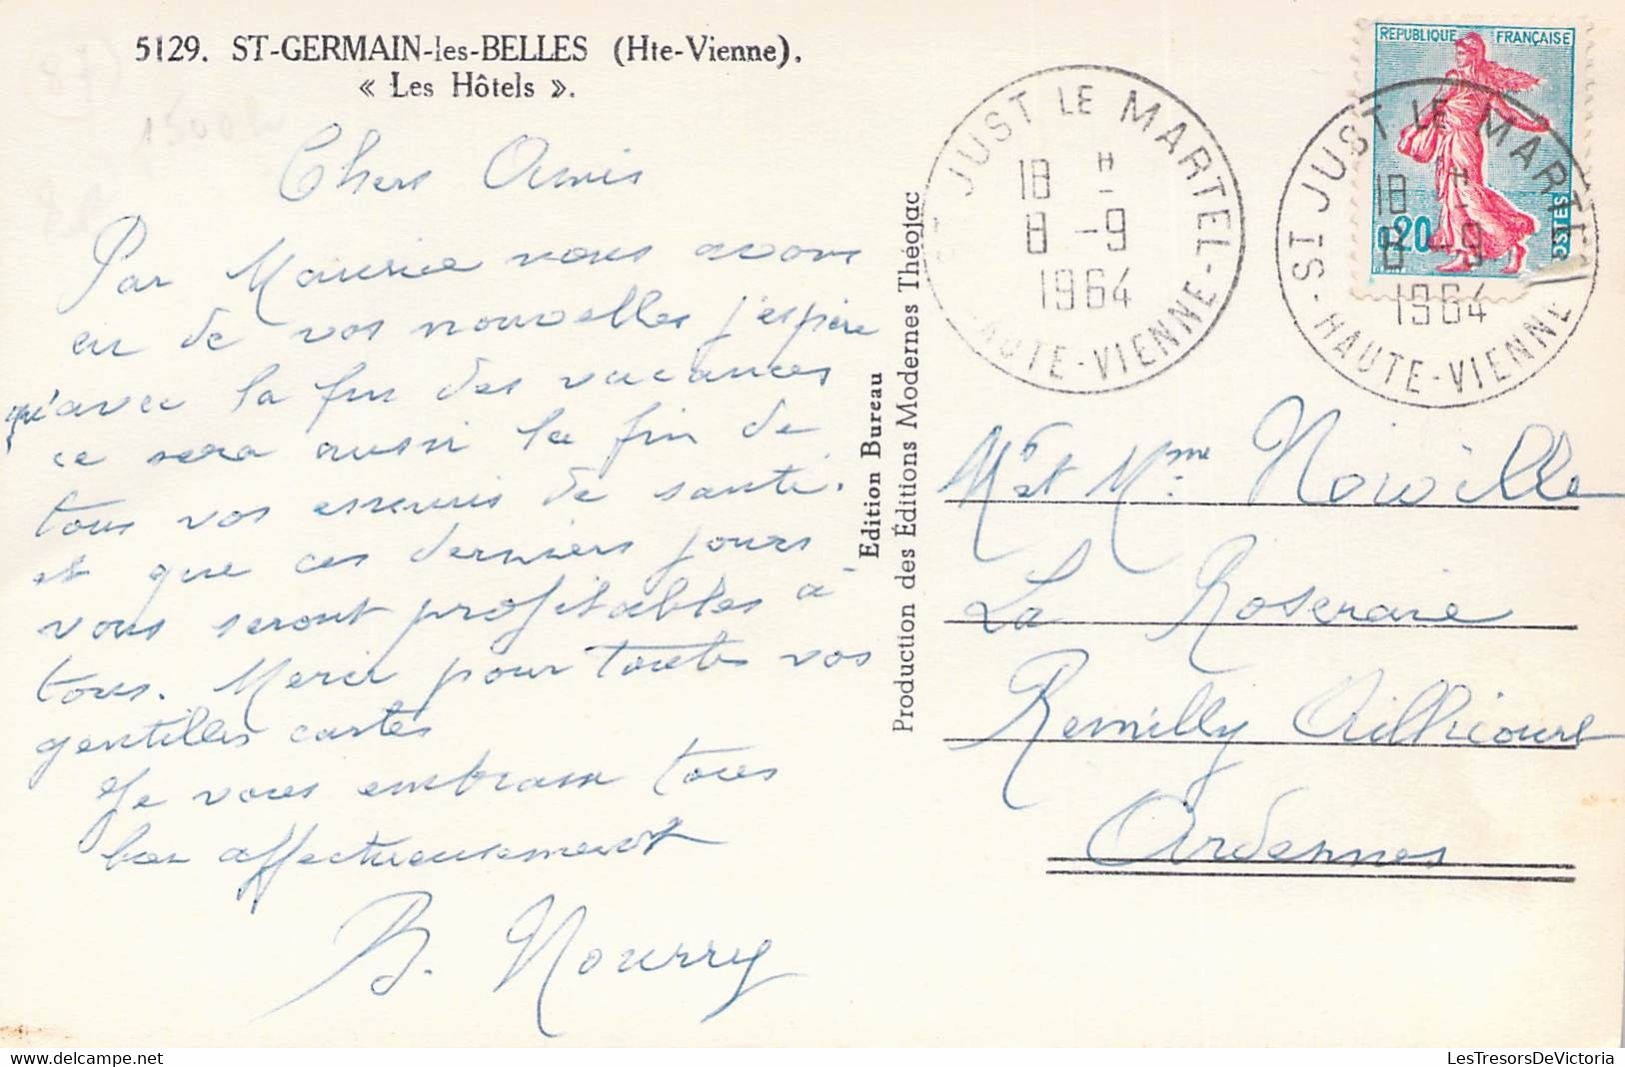 5129. ST-GERMAIN-les-BELLES (Hte-Vienne).
« Les Hôtels ».
Chers Amis
Par Maurice nous avons
eu de vos nouvelles j'espère
qu'avec la fin des vacances
ce sera aussi la fin de
tous vos ennuis de santé.
et que ces derniers jours
vous seront profitables à
tous. Merci pour toutes vos
gentilles cartes
Je vous embrasse tous
bien affectueusement
B. Nourry
Edition Bureau
Production des Éditions Modernes Théojac
ST JUST LE MARTEL
18 H
8 - 9
1964
HAUTE-VIENNE
REPUBLIQUE FRANÇAISE
0,20
POSTES
ST JUST LE MARTEL
18 H
8 - 9
1964
- HAUTE-VIENNE
Mr et Mme
La Roseraie
Remilly Aillicourt
Ardennes
LesTresorsDeVictoria